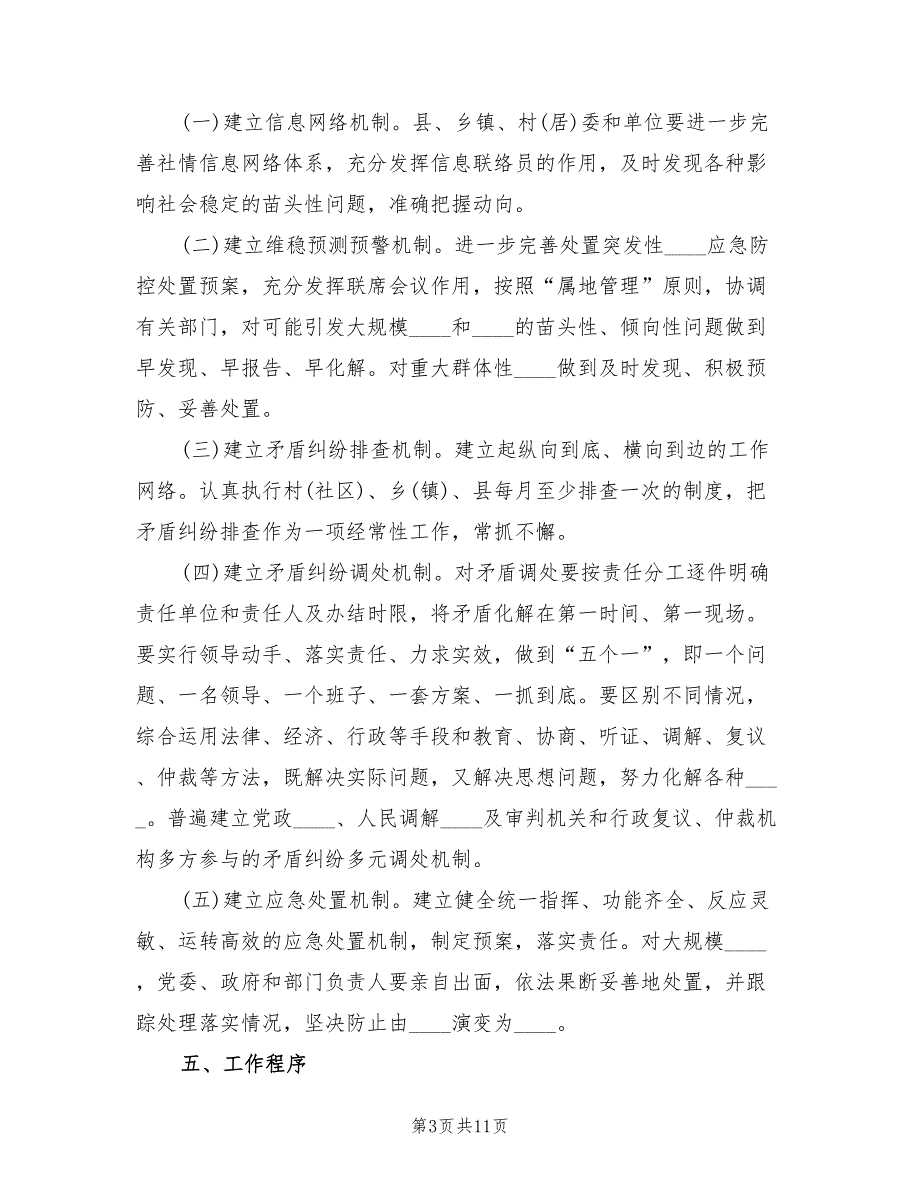 (一)建立信息网络机制。县、乡镇、村(居)委和单位要进一步完
善社情信息网络体系，充分发挥信息联络员的作用，及时发现各种影
响社会稳定的苗头性问题，准确把握动向。
(二)建立维稳预测预警机制。进一步完善处置突发性____应急防
控处置预案，充分发挥联席会议作用，按照“属地管理”原则，协调
有关部门，对可能引发大规模____和____的苗头性、倾向性问题做到
早发现、早报告、早化解。对重大群体性____做到及时发现、积极预
防、妥善处置。
(三)建立矛盾纠纷排查机制。建立起纵向到底、横向到边的工作
网络。认真执行村(社区)、乡(镇)、县每月至少排查一次的制度，把
矛盾纠纷排查作为一项经常性工作，常抓不懈。
(四)建立矛盾纠纷调处机制。对矛盾调处要按责任分工逐件明确
责任单位和责任人及办结时限，将矛盾化解在第一时间、第一现场。
要实行领导动手、落实责任、力求实效，做到“五个一”，即一个问
题、一名领导、一个班子、一套方案、一抓到底。要区别不同情况，
综合运用法律、经济、行政等手段和教育、协商、听证、调解、复议
、仲裁等方法，既解决实际问题，又解决思想问题，努力化解各种___
_。普遍建立党政____、人民调解____及审判机关和行政复议、仲裁机
构多方参与的矛盾纠纷多元调处机制。
(五)建立应急处置机制。建立健全统一指挥、功能齐全、反应灵
敏、运转高效的应急处置机制，制定预案，落实责任。对大规模____
，党委、政府和部门负责人要亲自出面，依法果断妥善地处置，并跟
踪处理落实情况，坚决防止由____演变为____。
五、工作程序
第3页共11页